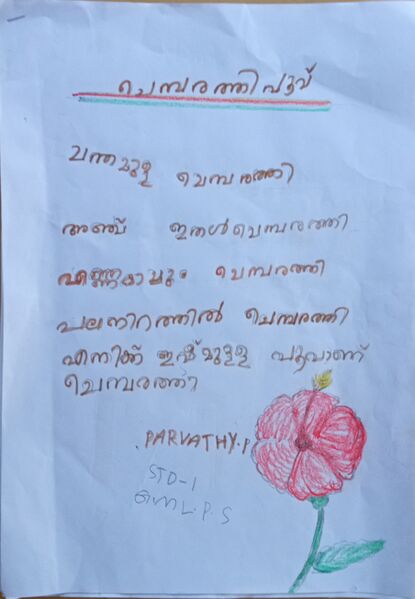 ചെമ്പരത്തിപൂവ്
ചന്തമുള്ള ചെമ്പരത്തി
അഞ്ച് ഇതൾചെമ്പരത്തി
എണ്ണകാച്ചും ചെമ്പരത്തി
പലനിറത്തിൽ ചെമ്പരത്തി
എനിക്ക് ഇഷ്ടമുള്ള പൂവാണ്
ചെമ്പരത്തി
PARVATHY.P
STD-1
L.P.S